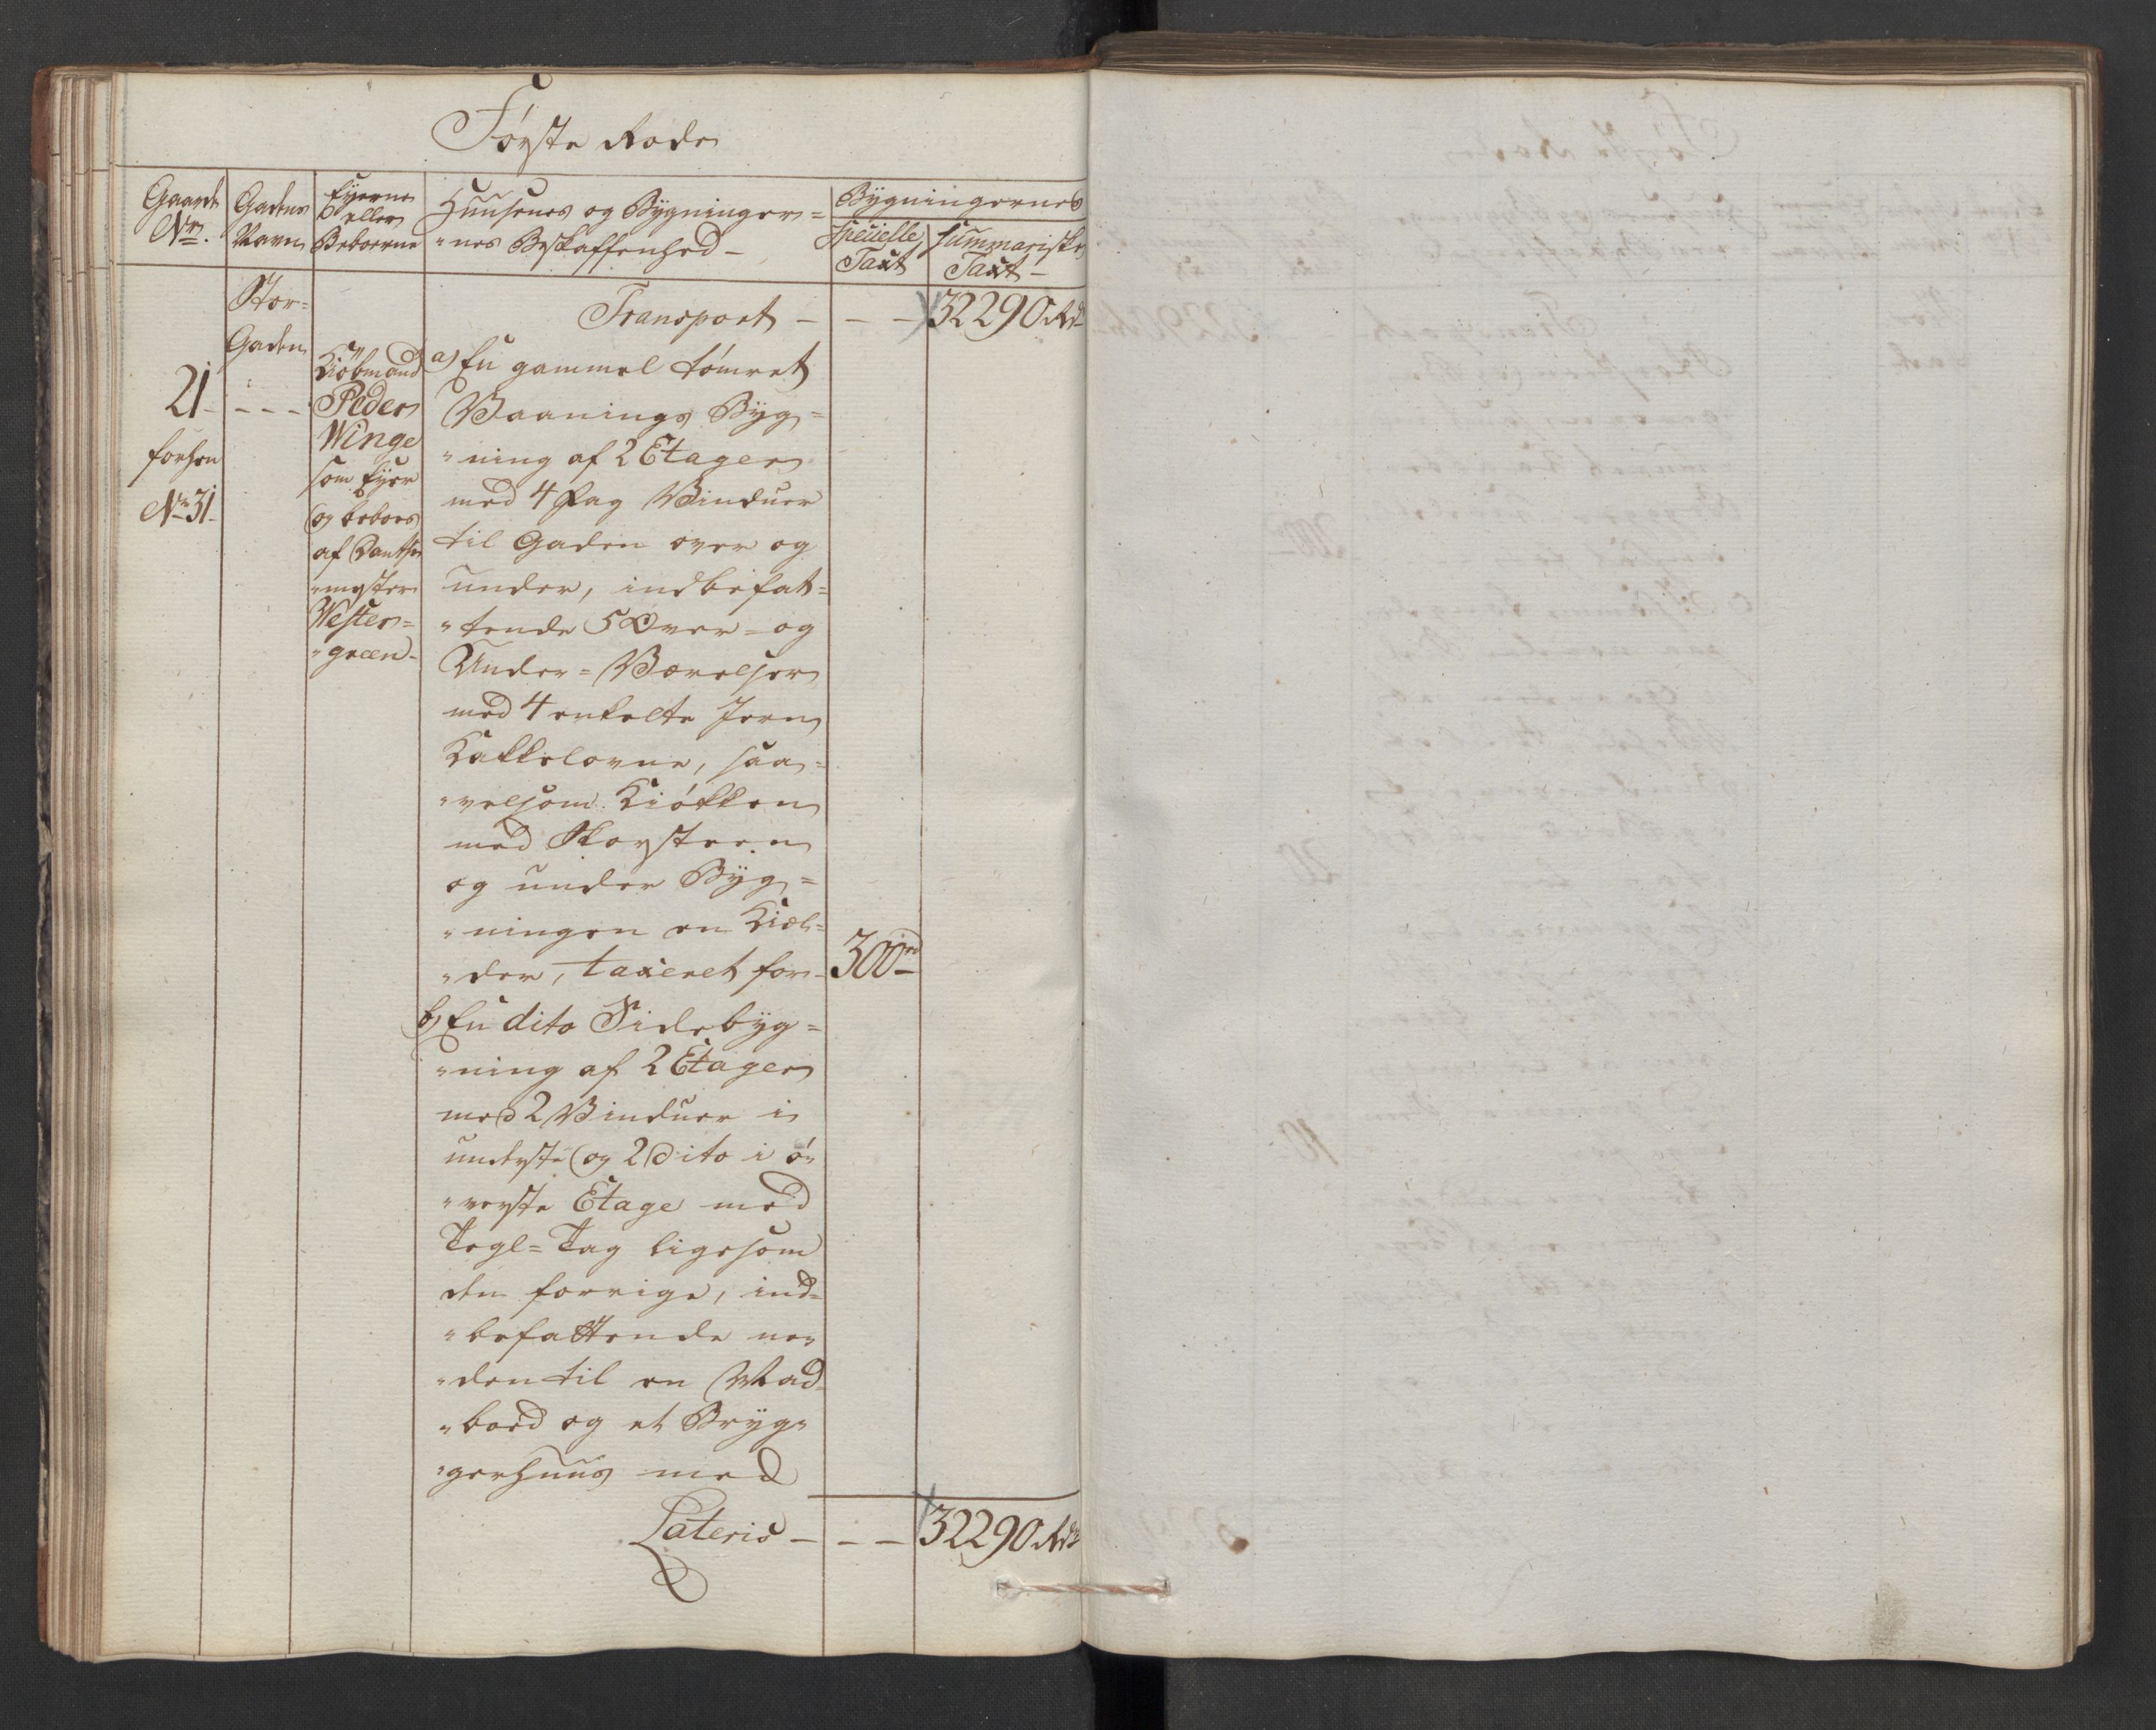 Første Rode
Gaards Nr.
Gadens Navn
Eyerne eller Beboerne
Huusenes og Bygninger=
"nes Beskaffenhed -
Bygningernes
specielle Taxt
summariske Taxt -
Transport - - - 32290 Rdr
Stor=
Gaden
21 - - - -
forhen
Nr 31
Kiøbmand
Peder
Winge
som Eyer
og beboes
af Dantse
"mester
Wester=
"green -
a) En gammel tømret
Vaanings Byg=
"ning af 2 Etager
med 4 Fag Vinduer
til Gaden over og
under, indbefat=
"tende 5 Over= og
Under= Værelser
med 4 enkelte Jern
Kakkelovne, saa=
"velsom Kiøkken
med Skorsteen
og under Byg=
"ningen en Kiel=
"der, taxeret for - 300 rd
b) En dito Sidebyg=
"ning af 2 Etager
med 2 Vinduer i
underste og 2 dito i ø"
"verste Etage med
Tegl= Tag ligesom
den forrige, ind=
"befattende ne"
"den til en Mad
"boed og et Bryg"
"gerhuus med
Lateris - - - 32290 Rdr